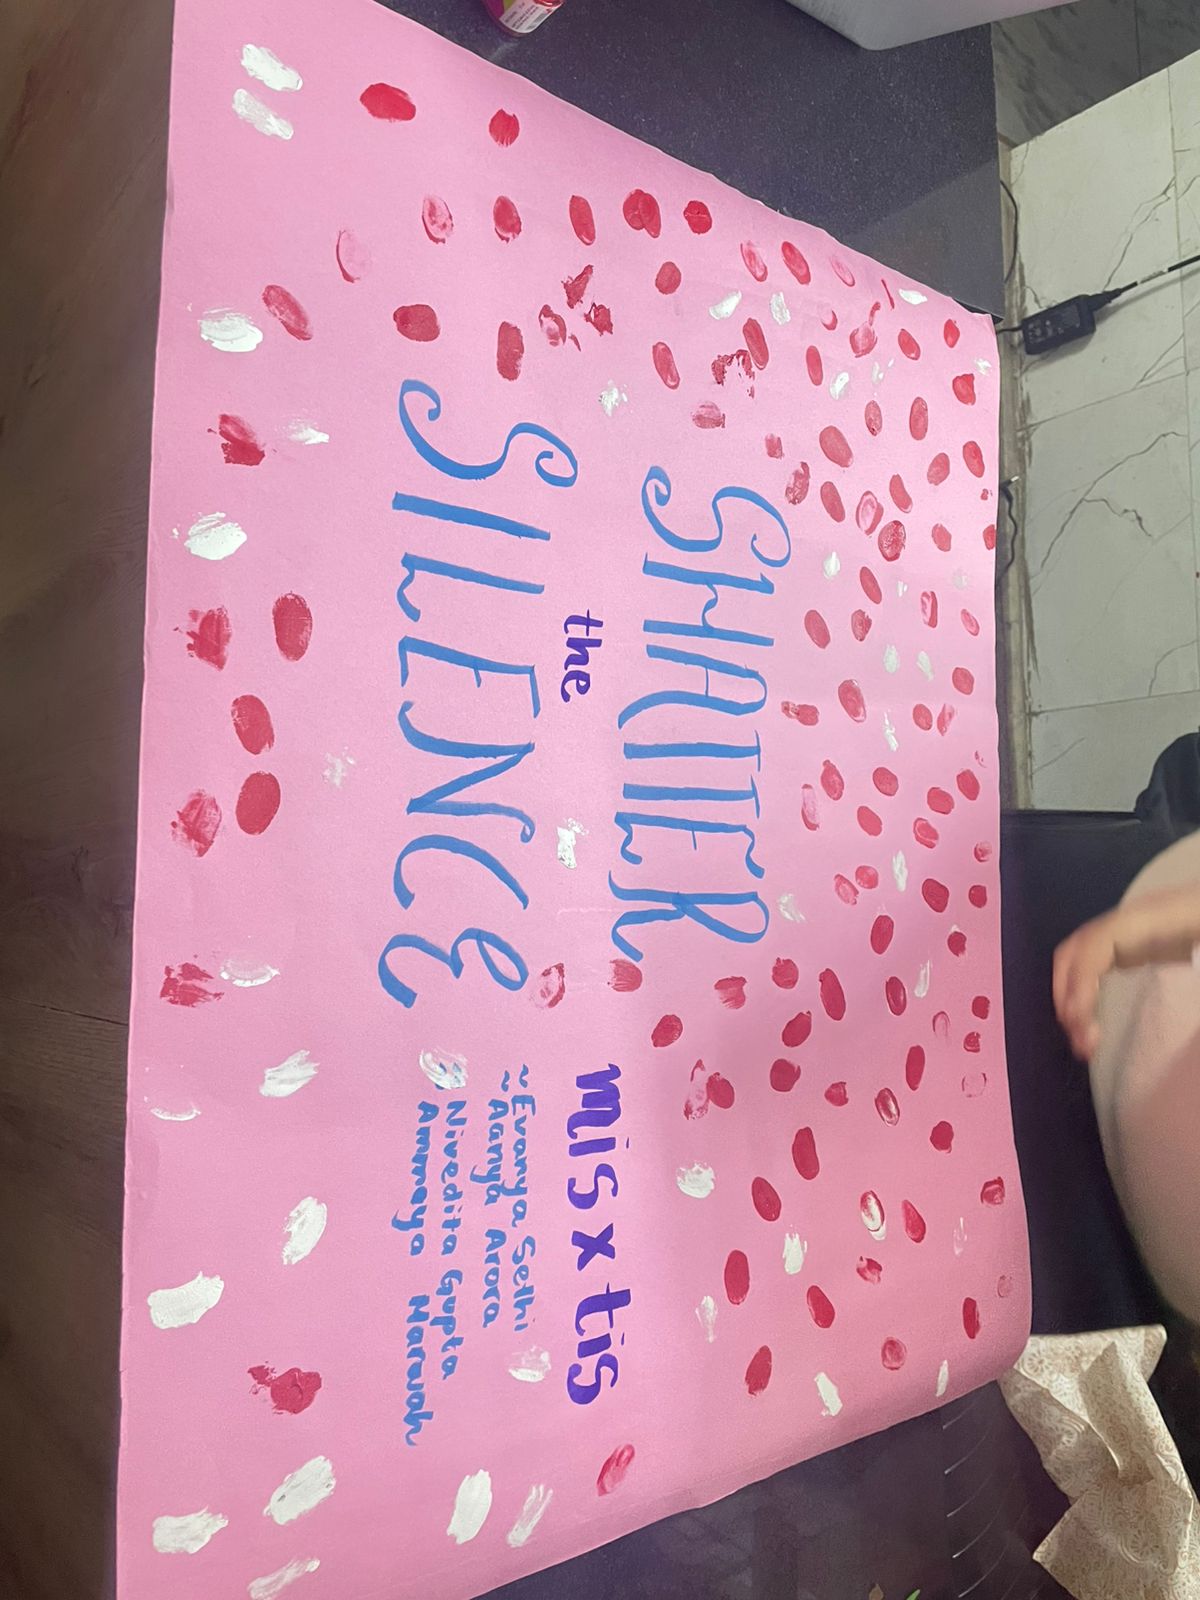 SHATTER
the
SILENCE
mis x tis
~Evanya Sethi
~Aanya Arora
Nivedita Gupta
Ammaya Marwah